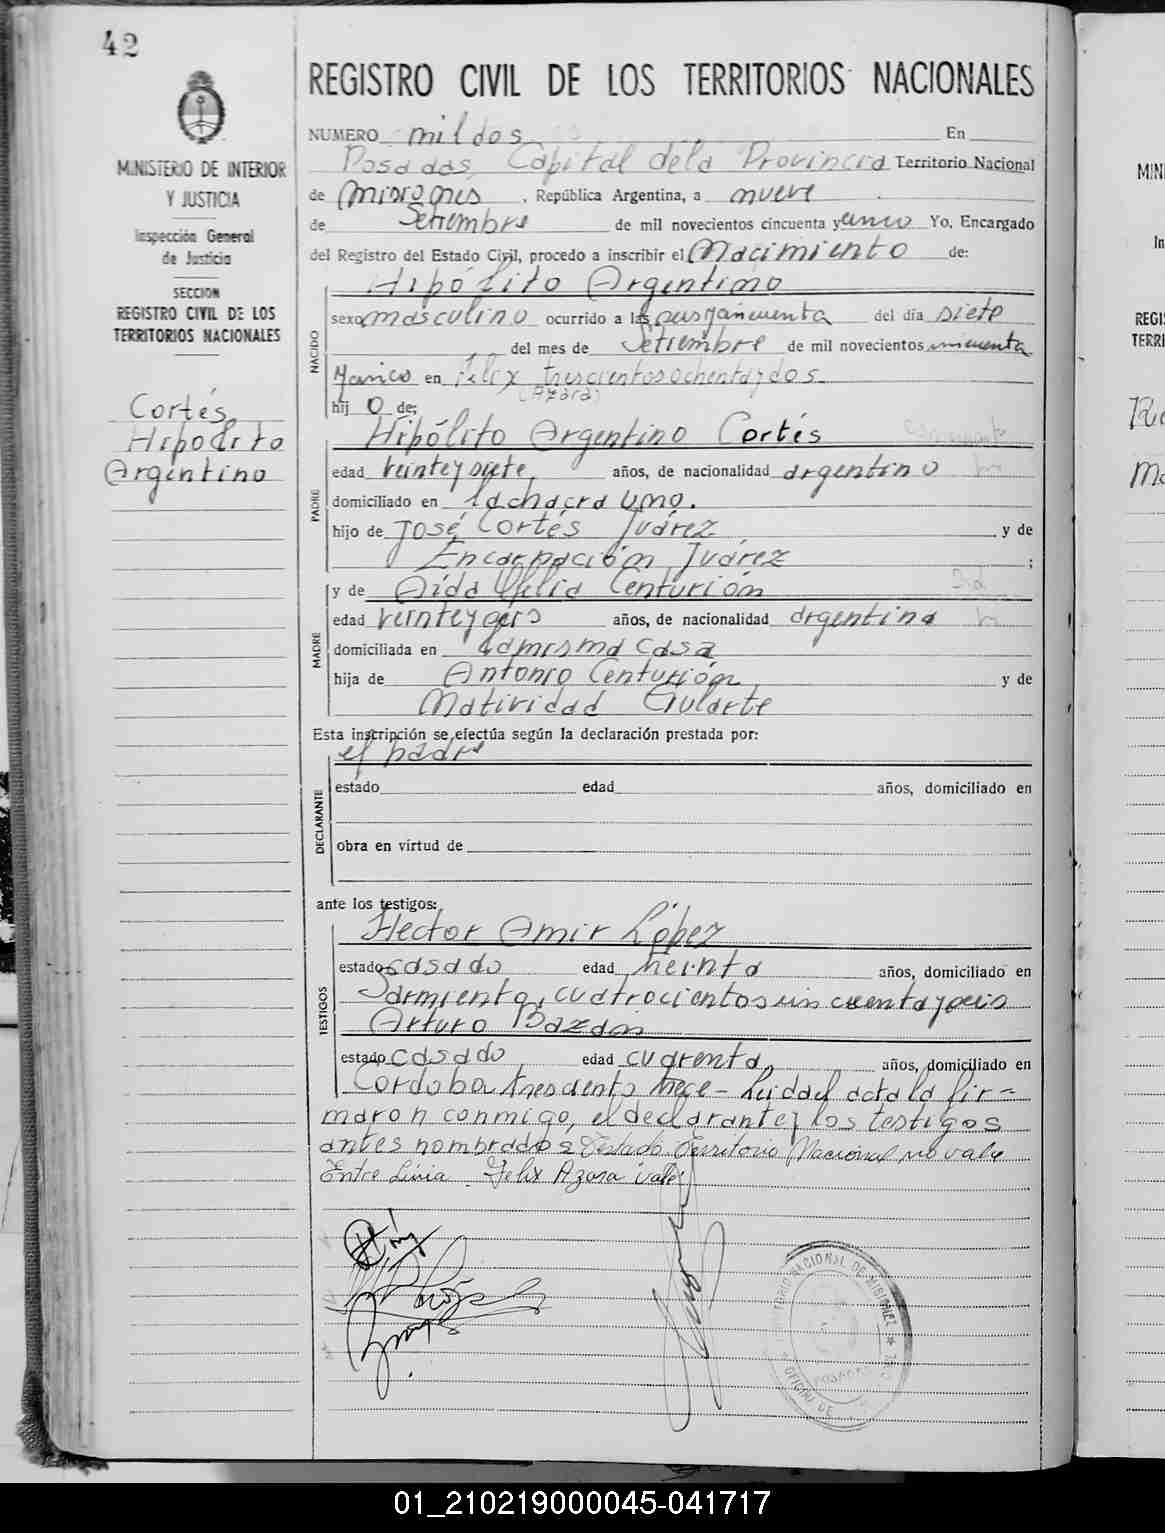 42
MINISTERIO DE INTERIOR
Y JUSTICIA
Inspección General
de Justicia
SECCION
REGISTRO CIVIL DE LOS
TERRITORIOS NACIONALES
Cortés
Hipólito
Argentino
REGISTRO CIVIL DE LOS TERRITORIOS NACIONALES
NUMERO mil dos En
Posadas, Capital de la Provincia Territorio Nacional
de Misiones, República Argentina, a nueve
de Setiembre de mil novecientos cincuenta y cinco Yo, Encargado
del Registro del Estado Civil, procedo a inscribir el Nacimiento de:
NACIDO
Hipólito Argentino
sexo masculino ocurrido a las del día siete
del mes de Setiembre de mil novecientos cincuenta
y cinco en Félix trescientos ochenta y dos
(Azara)
hij o de:
PADRE
Hipólito Argentino Cortés
edad veinte y siete años, de nacionalidad argentino
domiciliado en la chacra uno.
hijo de José Cortés Juárez y de
Encarnación Juárez ;
MADRE
y de Aída Centurión
edad años, de nacionalidad argentina
domiciliada en la misma casa
hija de Antonio Centurión y de
Natividad Gularte
Esta inscripción se efectúa según la declaración prestada por:
el padre
DECLARANTE
estado edad años, domiciliado en
obra en virtud de
ante los testigos:
TESTIGOS
Héctor Amir López
estado casado edad treinta años, domiciliado en
Sarmiento, cuatrocientos cincuenta y seis
Arturo Bazán
estado casado edad cuarenta años, domiciliado en
Córdoba trescientos trece - Leída el acta la fir=
maron conmigo, el declarante y los testigos
antes nombrados Testado Territorio Nacional no vale
Entre Linia Felix Azara vale
TERRITORIO NACIONAL DE MISIONES
POSADAS
MINI
In
REGIS
TERRI
01_210219000045-041717